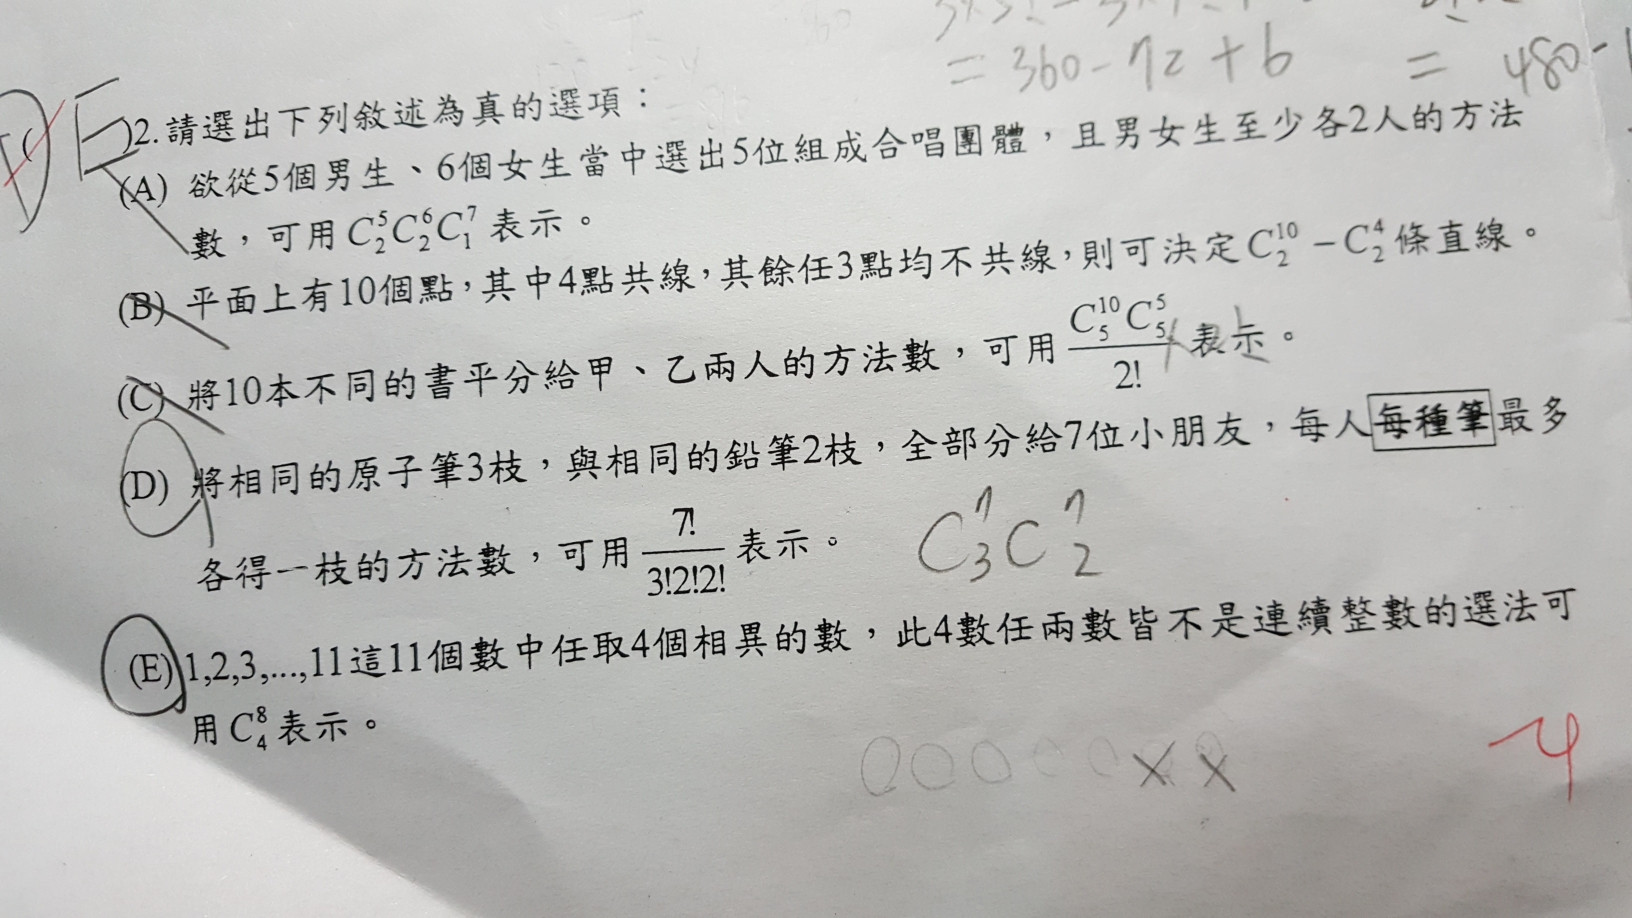 = 360 - 72 + 6 = 480 -
E
2.請選出下列敘述為真的選項：
(A) 欲從5個男生、6個女生當中選出5位組成合唱團體，且男女生至少各2人的方法
數，可用 C⁵₂C⁶₂C⁷₁ 表示。
(B) 平面上有10個點，其中4點共線，其餘任3點均不共線，則可決定 C¹⁰₂ − C⁴₂ 條直線。
(C) 將10本不同的書平分給甲、乙兩人的方法數，可用 C¹⁰₅C⁵₅/2! 表示。
(D) 將相同的原子筆3枝，與相同的鉛筆2枝，全部分給7位小朋友，每人每種筆最多
各得一枝的方法數，可用 7!/3!2!2! 表示。 C⁷₃C⁷₂
(E) 1,2,3,...,11這11個數中任取4個相異的數，此4數任兩數皆不是連續整數的選法可
用 C⁸₄ 表示。